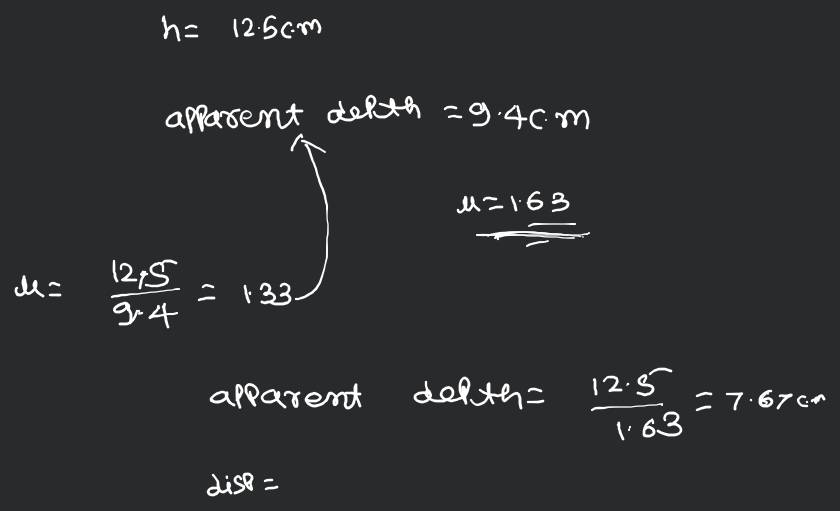 h= 12.5cm
apparent depth = 9.4cm
μ=1.63
μ= 12.5/9.4 = 1.33
apparent depth= 12.5/1.63 = 7.67cm
disp =